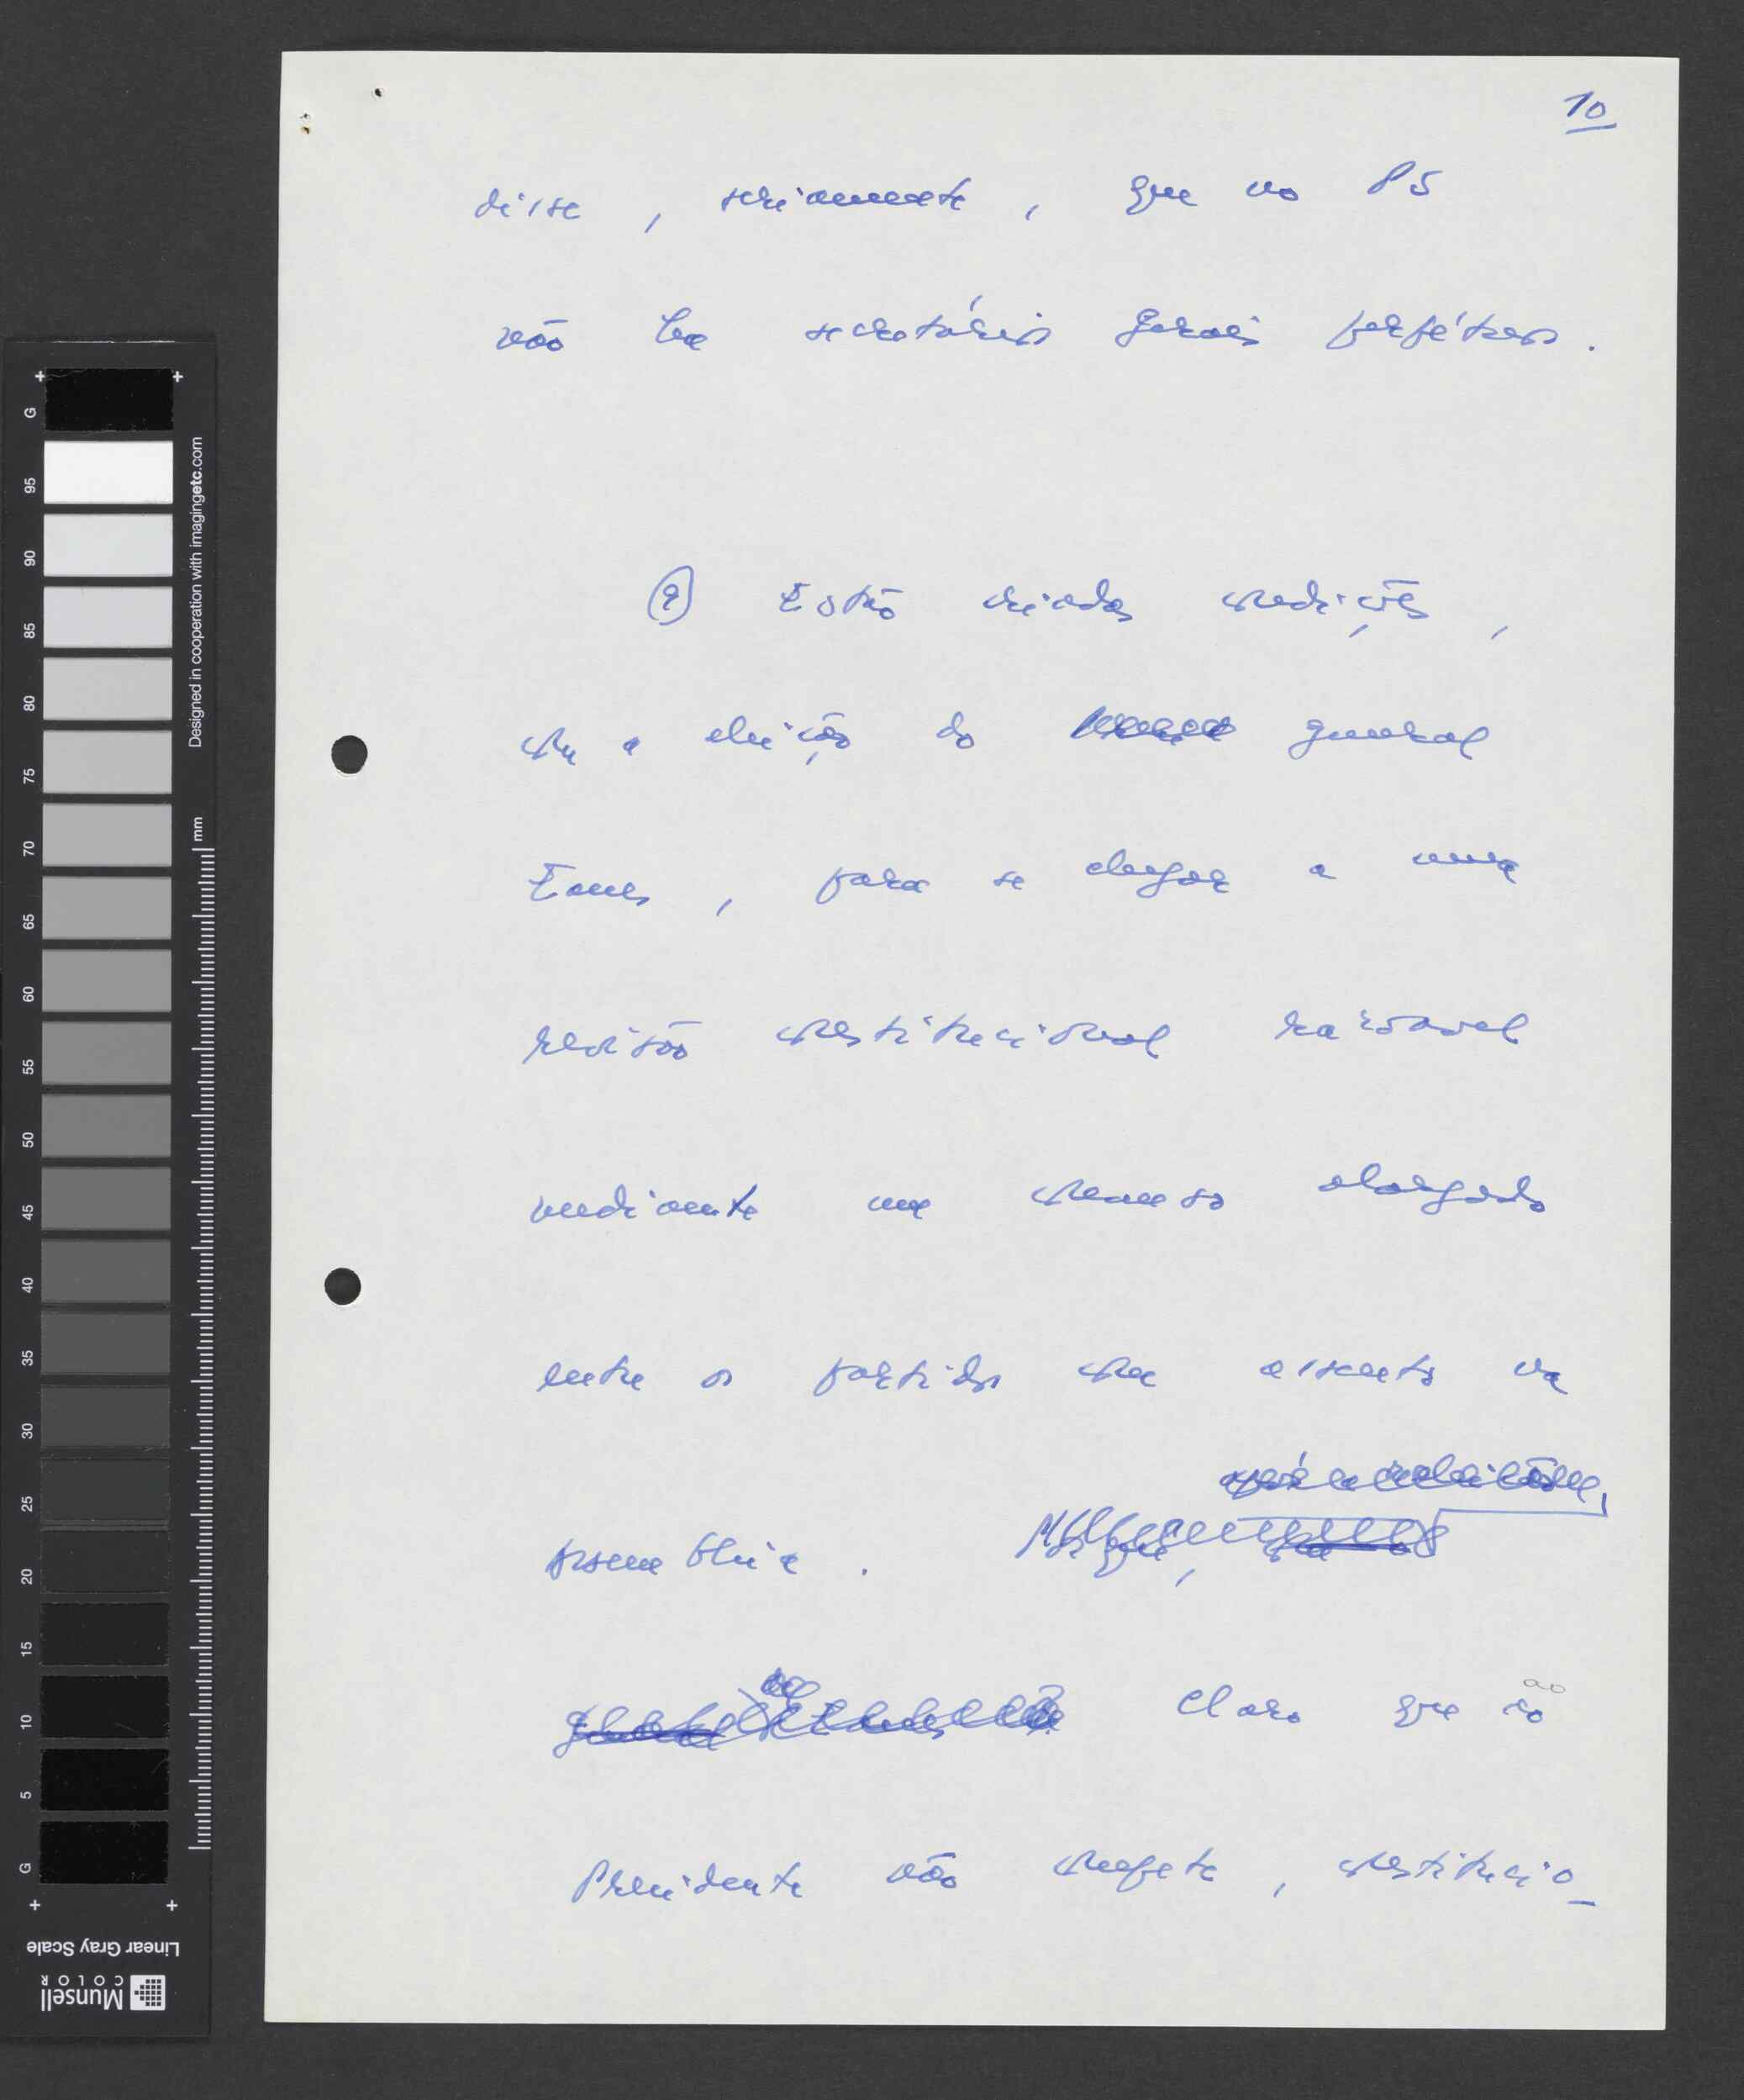 10
disse, seriamente, que no PS
não há secretários gerais perpétuos.
9 Estão criadas condições,
com a eleição do general
Eanes, para se chegar a uma
revisão constitucional razoável
mediante um consenso alargado
entre os partidos com assento na
Assembleia.
Claro que ao
Presidente não compete, constitucio-
G 95 90 85 80 75 70 65 60 55 50 45 40 35 30 25 20 15 10 5 G
Designed in cooperation with imagingetc.com
mm
Linear Gray Scale
Munsell
COLOR